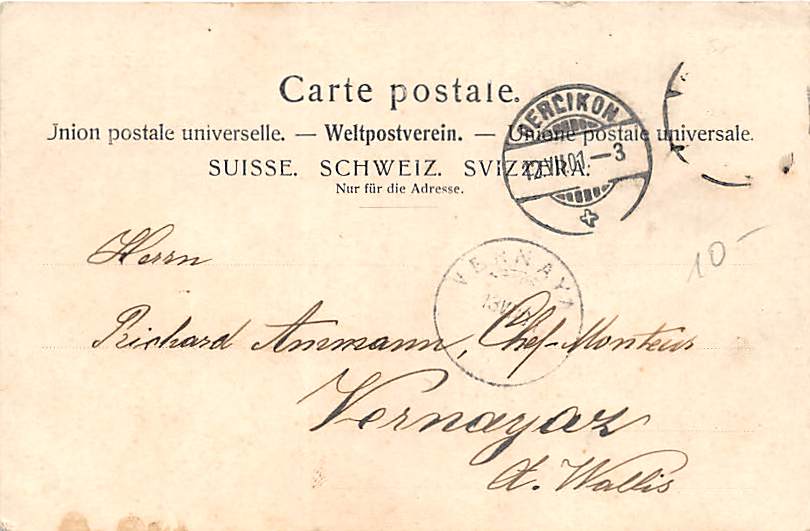 Carte postale.
Jnion postale universelle. — Weltpostverein. — Unione postale universale.
SUISSE. SCHWEIZ. SVIZZERA.
Nur für die Adresse.
OERLIKON
12.VII.01.-3
10-
VERNAYAZ
13 VII
Herrn
Richard Ammann, Chef-Monteur
Vernayaz
Ct. Wallis